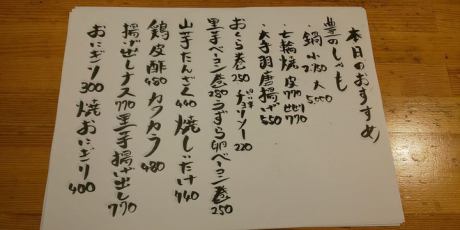 本日のおすすめ
豊のしゃも
・鍋 小2,750 大5,000
・七輪焼 皮770
・大手羽唐揚げ550
おくら巻250 チョリソー220
里芋ベーコン巻280 うずら卵ベーコン巻250
山芋たんざく440 焼しいたけ440
鶏皮酢480 カクカラ480
揚げ出しナス770 里芋揚げ出し770
おにぎり300 焼おにぎり400